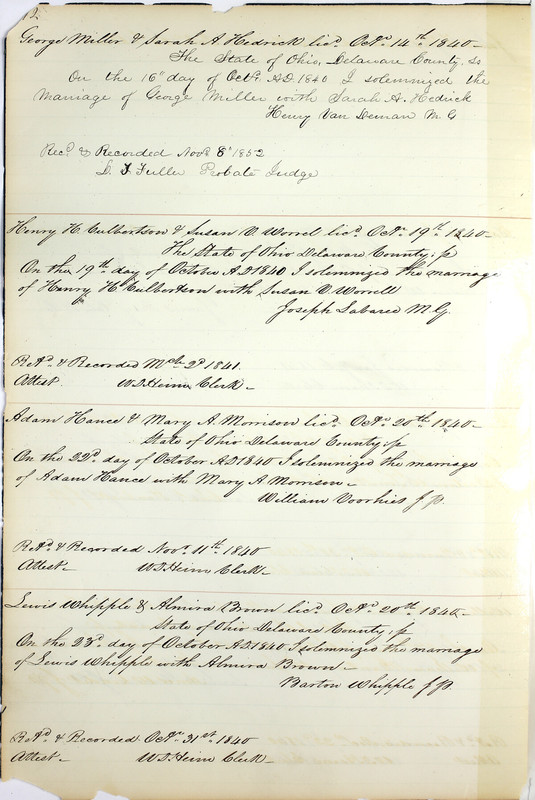 12
George Miller & Sarah A. Hedrick licd. Octr. 14th. 1840–
The State of Ohio, Delaware County, ss
On the 16" day of Octr. A.D. 1840 I solemnized the
Marriage of George Miller with Sarah A. Hedrick
Henry Van Deman M. G
Recd. & Recorded Novr. 8' 1852
Probate Judge
Henry H. Culbertson & Susan V. Worrel licd. Octr. 19th. 1840–
The State of Ohio Delaware County, ss
On the 19th. day of October A.D 1840 I solemnized the marriage
of Henry H. Culbertson with Susan V. Worrell
Joseph Labaree M.G.
Retd. & Recorded Mch. 2d 1841.
Attest. W.D. Heim Clerk–
Adam Hance & Mary A. Morrison licd. Octr. 20th. 1840–
State of Ohio Delaware County, ss
On the 22d. day of October A.D 1840 I solemnized the marriage
of Adam Hance with Mary A Morrison–
William Voorhies J.P.
Retd. & Recorded Novr. 11th. 1840
Attest– W.D. Heim Clerk–
Lewis Whipple & Almira Brown licd. Octr. 20th. 1840–
State of Ohio Delaware County, ss
On the 23d. day of October A.D 1840 I solemnized the marriage
of Lewis Whipple with Almira Brown–
Barton Whipple J.P.
Retd. & Recorded Octr. 31st. 1840
Attest– W.D. Heim Clerk–